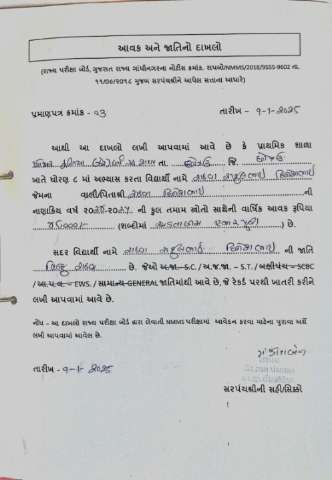 આવક અને જાતિનો દાખલો
(રાજ્ય પરીક્ષા બોર્ડ, ગુજરાત રાજ્ય ગાંધીનગરના નોટીસ ક્રમાંક. રાપબો/NMMS/2018/9550-9602 તા.
૧૧/૦૯/૨૦૧૮ મુજબ સરપંચશ્રીને આપેલ સત્તાના આધારે)
પ્રમાણપત્ર ક્રમાંક - ૦૩ તારીખ - ૧-૧-૨૦૨૫
આથી આ દાખલો લખી આપવામાં આવે છે કે પ્રાથમિક શાળા
તા. જિ.
ખાતે ધોરણ ૮ માં અભ્યાસ કરતા વિદ્યાર્થી નામે
જેમના વાલી/પિતાશ્રી ની
નાણાકિય વર્ષ ની કુલ તમામ સ્ત્રોતો સાથેની વાર્ષિક આવક રૂપિયા
(શબ્દોમાં ) છે.
સદર વિદ્યાર્થી નામે ની જાતિ
હિન્દુ છે. જેઓ અ.જા.-S.C./ અ.જ.જા. - S.T./ બક્ષીપંચ - SCBC
/ આ.પ.વ. - EWS. / સામાન્ય-GENERAL જાતિમાંથી આવે છે, જે રેકર્ડ પરથી ખાતરી કરીને
લખી આપવામાં આવે છે.
નોંધ - આ દાખલો રાજ્ય પરીક્ષા બોર્ડ દ્વારા લેવાતી NMMS પરીક્ષામાં આવેદન કરવા માટેના પુરાવા અર્થે
લખી આપવામાં આવેલ છે.
તારીખ - ૧-૧-૨૦૨૫
સરપંચશ્રીની સહી/સિક્કો